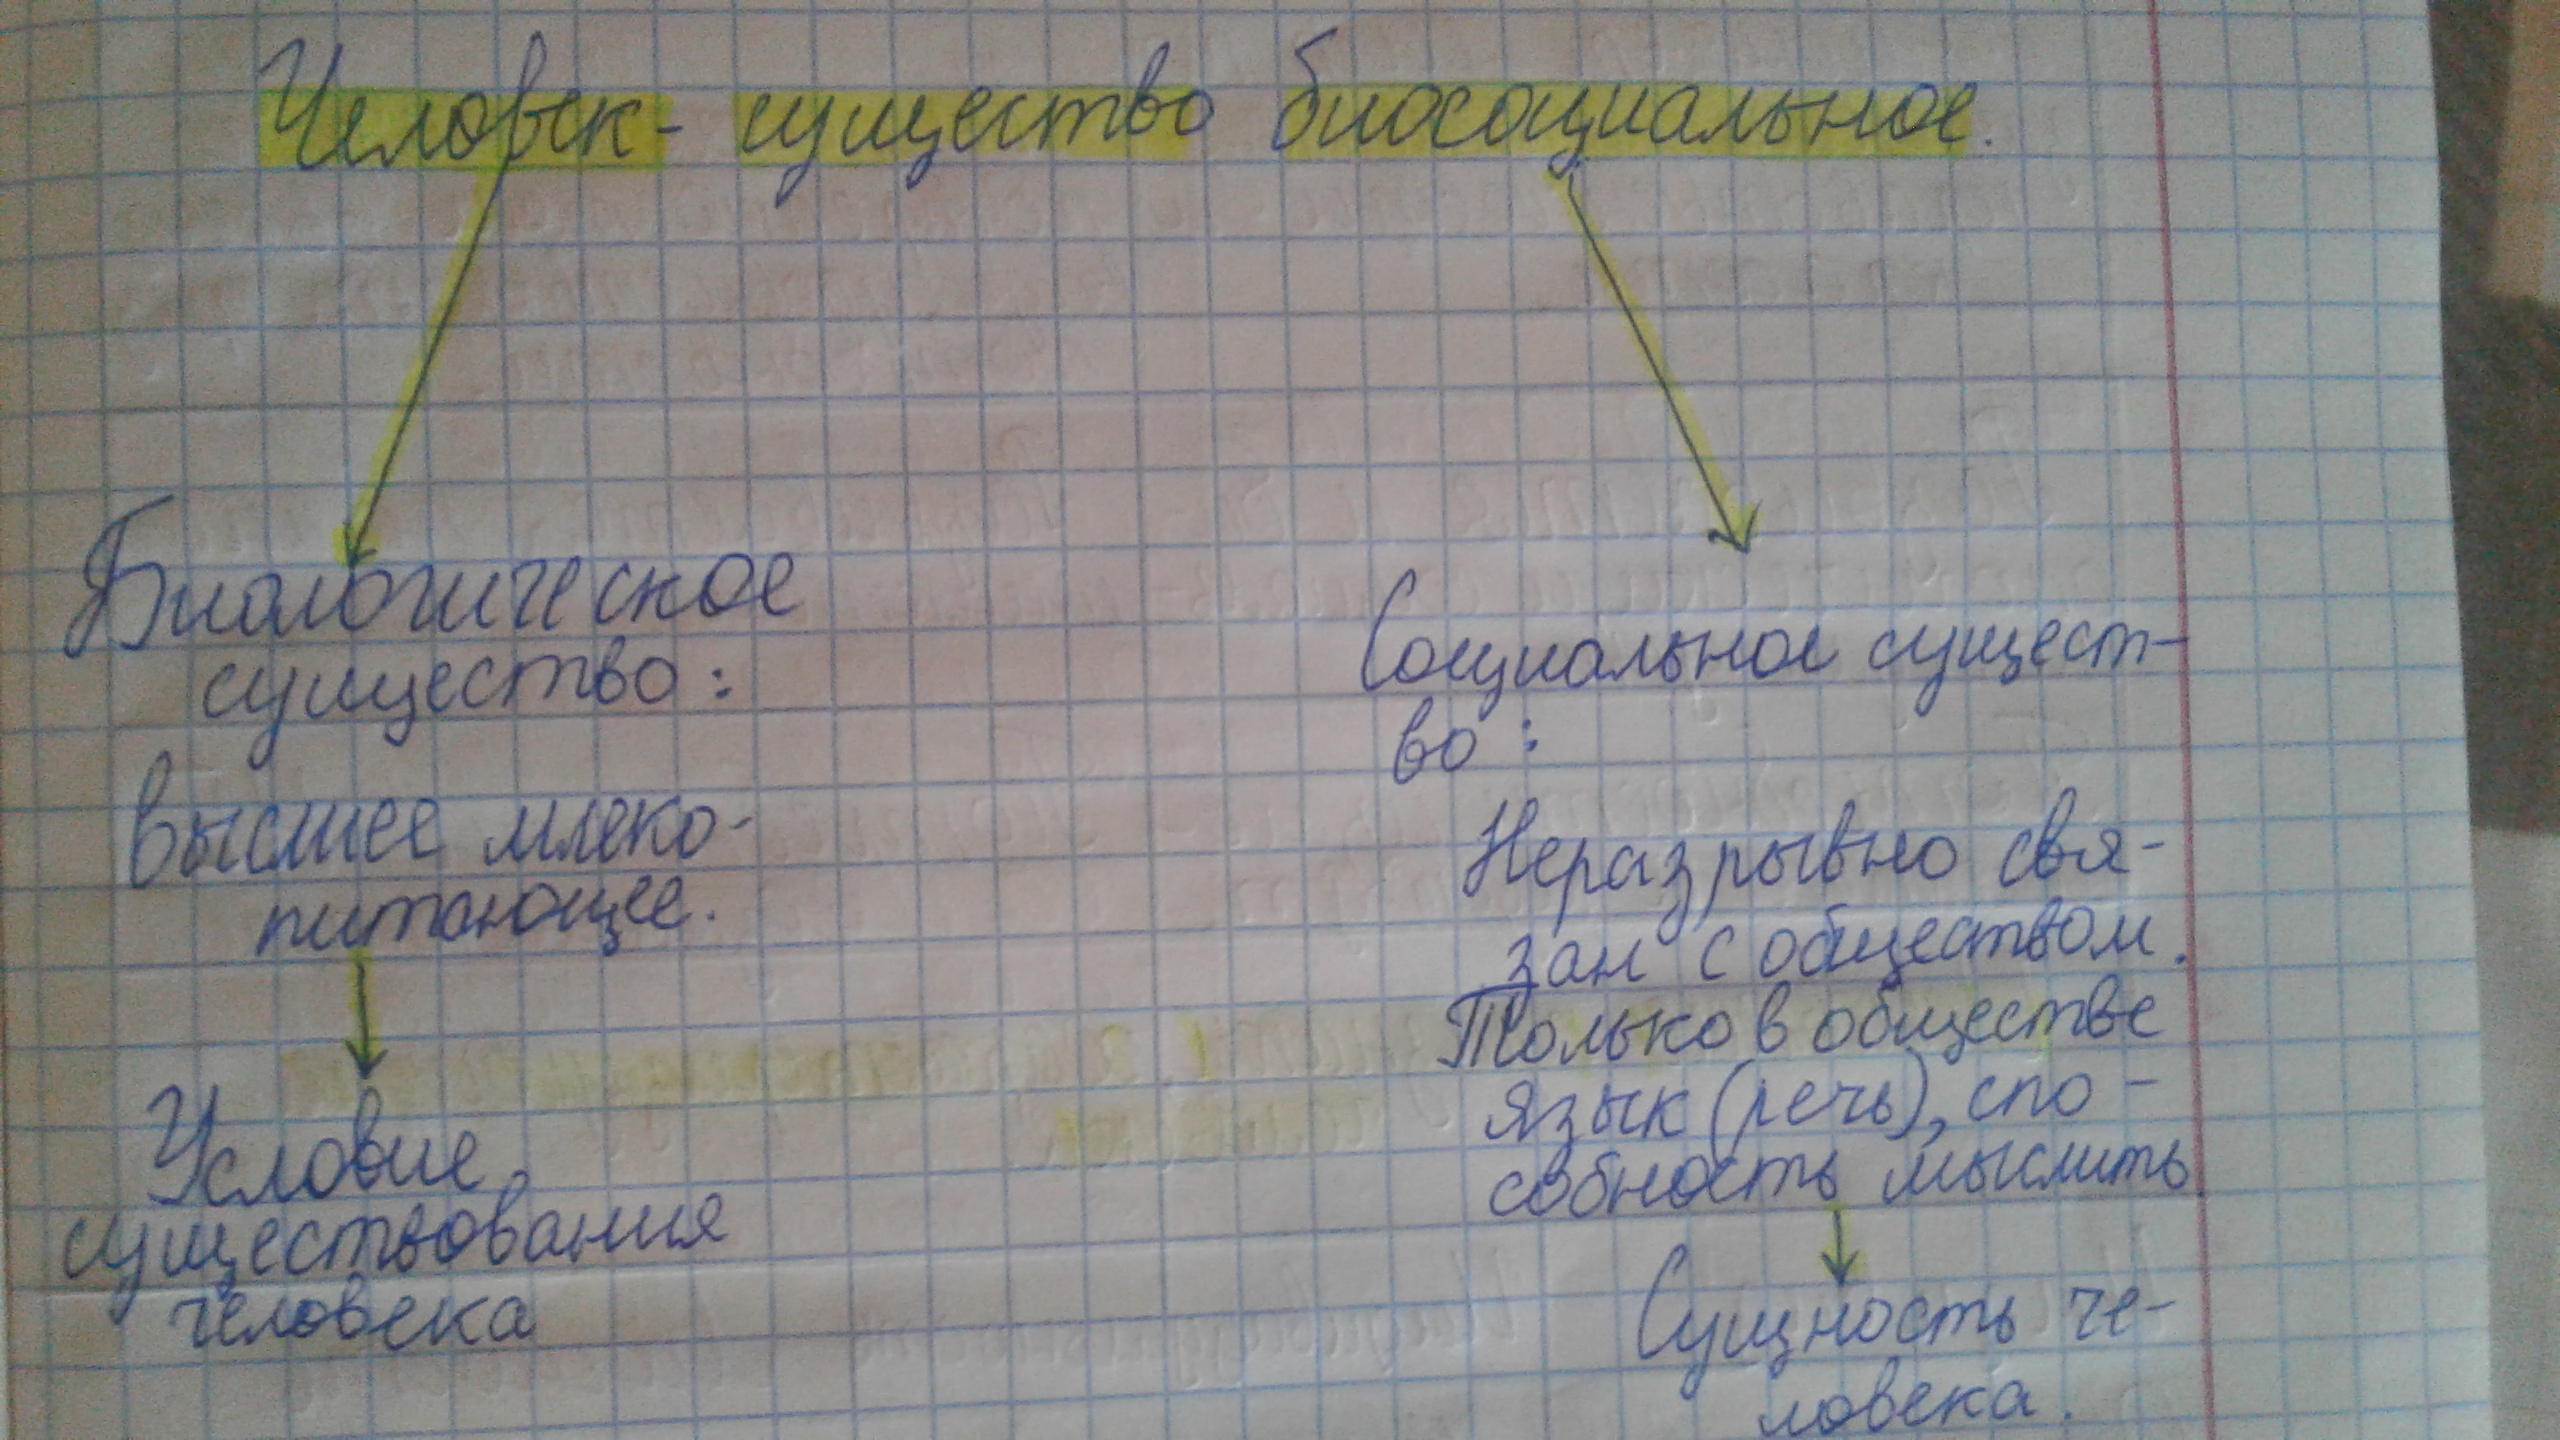 Человек - существо биосоциальное.
Биологическое
существо:
высшее млеко-
питающее.
Условие
существования
человека
Социальное сущест-
во:
Неразрывно свя-
зан с обществом.
Только в обществе
язык (речь), спо-
собность мыслить
Сущность че-
ловека.